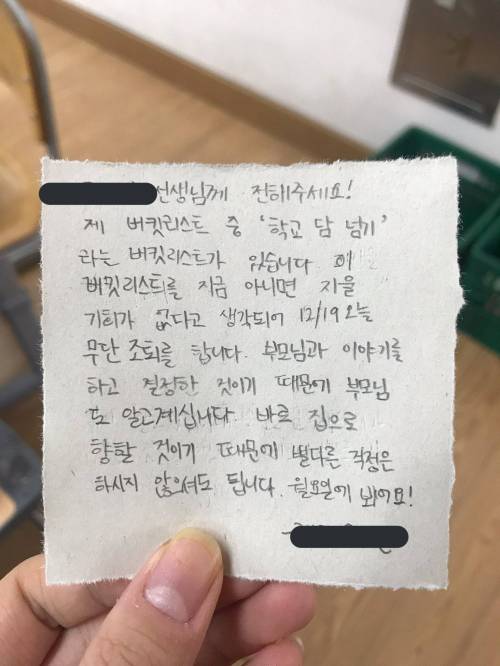 선생님께 전해주세요!
제 버킷리스트 중 '학교 담 넘기'
라는 버킷리스트가 있습니다 이
버킷리스트를 지금 아니면 지울
기회가 없다고 생각되어 12/19 오늘
무단 조퇴를 합니다. 부모님과 이야기를
하고 결정한 것이기 때문에 부모님
도 알고계십니다 바로 집으로
향할 것이기 때문에 별다른 걱정은
하시지 않으셔도 됩니다. 월요일에 봐어요!